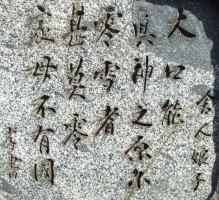 舍人娘子
大口能
真神之原尓
零雪者
甚莫零
家母不有國
孝書